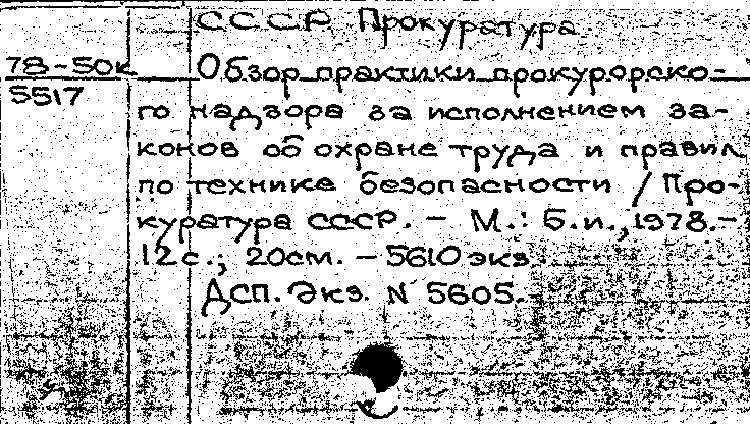 СССР. Прокуратура.
78-50к
5517
Обзор практики прокурорско-
го надзора за исполнением за-
конов об охране труда и правил
по технике безопасности / Про-
куратура СССР. - М.: Б.и., 1978.-
12 с.; 20 см. - 5610 экз.
ДСП. Экз. N 5605.-